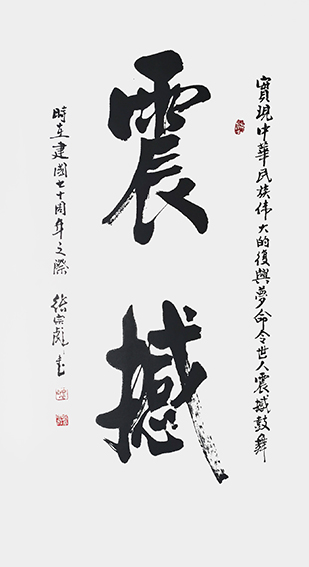 實現中華民族偉大的復興夢命令世人震撼鼓舞
震撼
時在建國七十周年之際 徐宗彪書